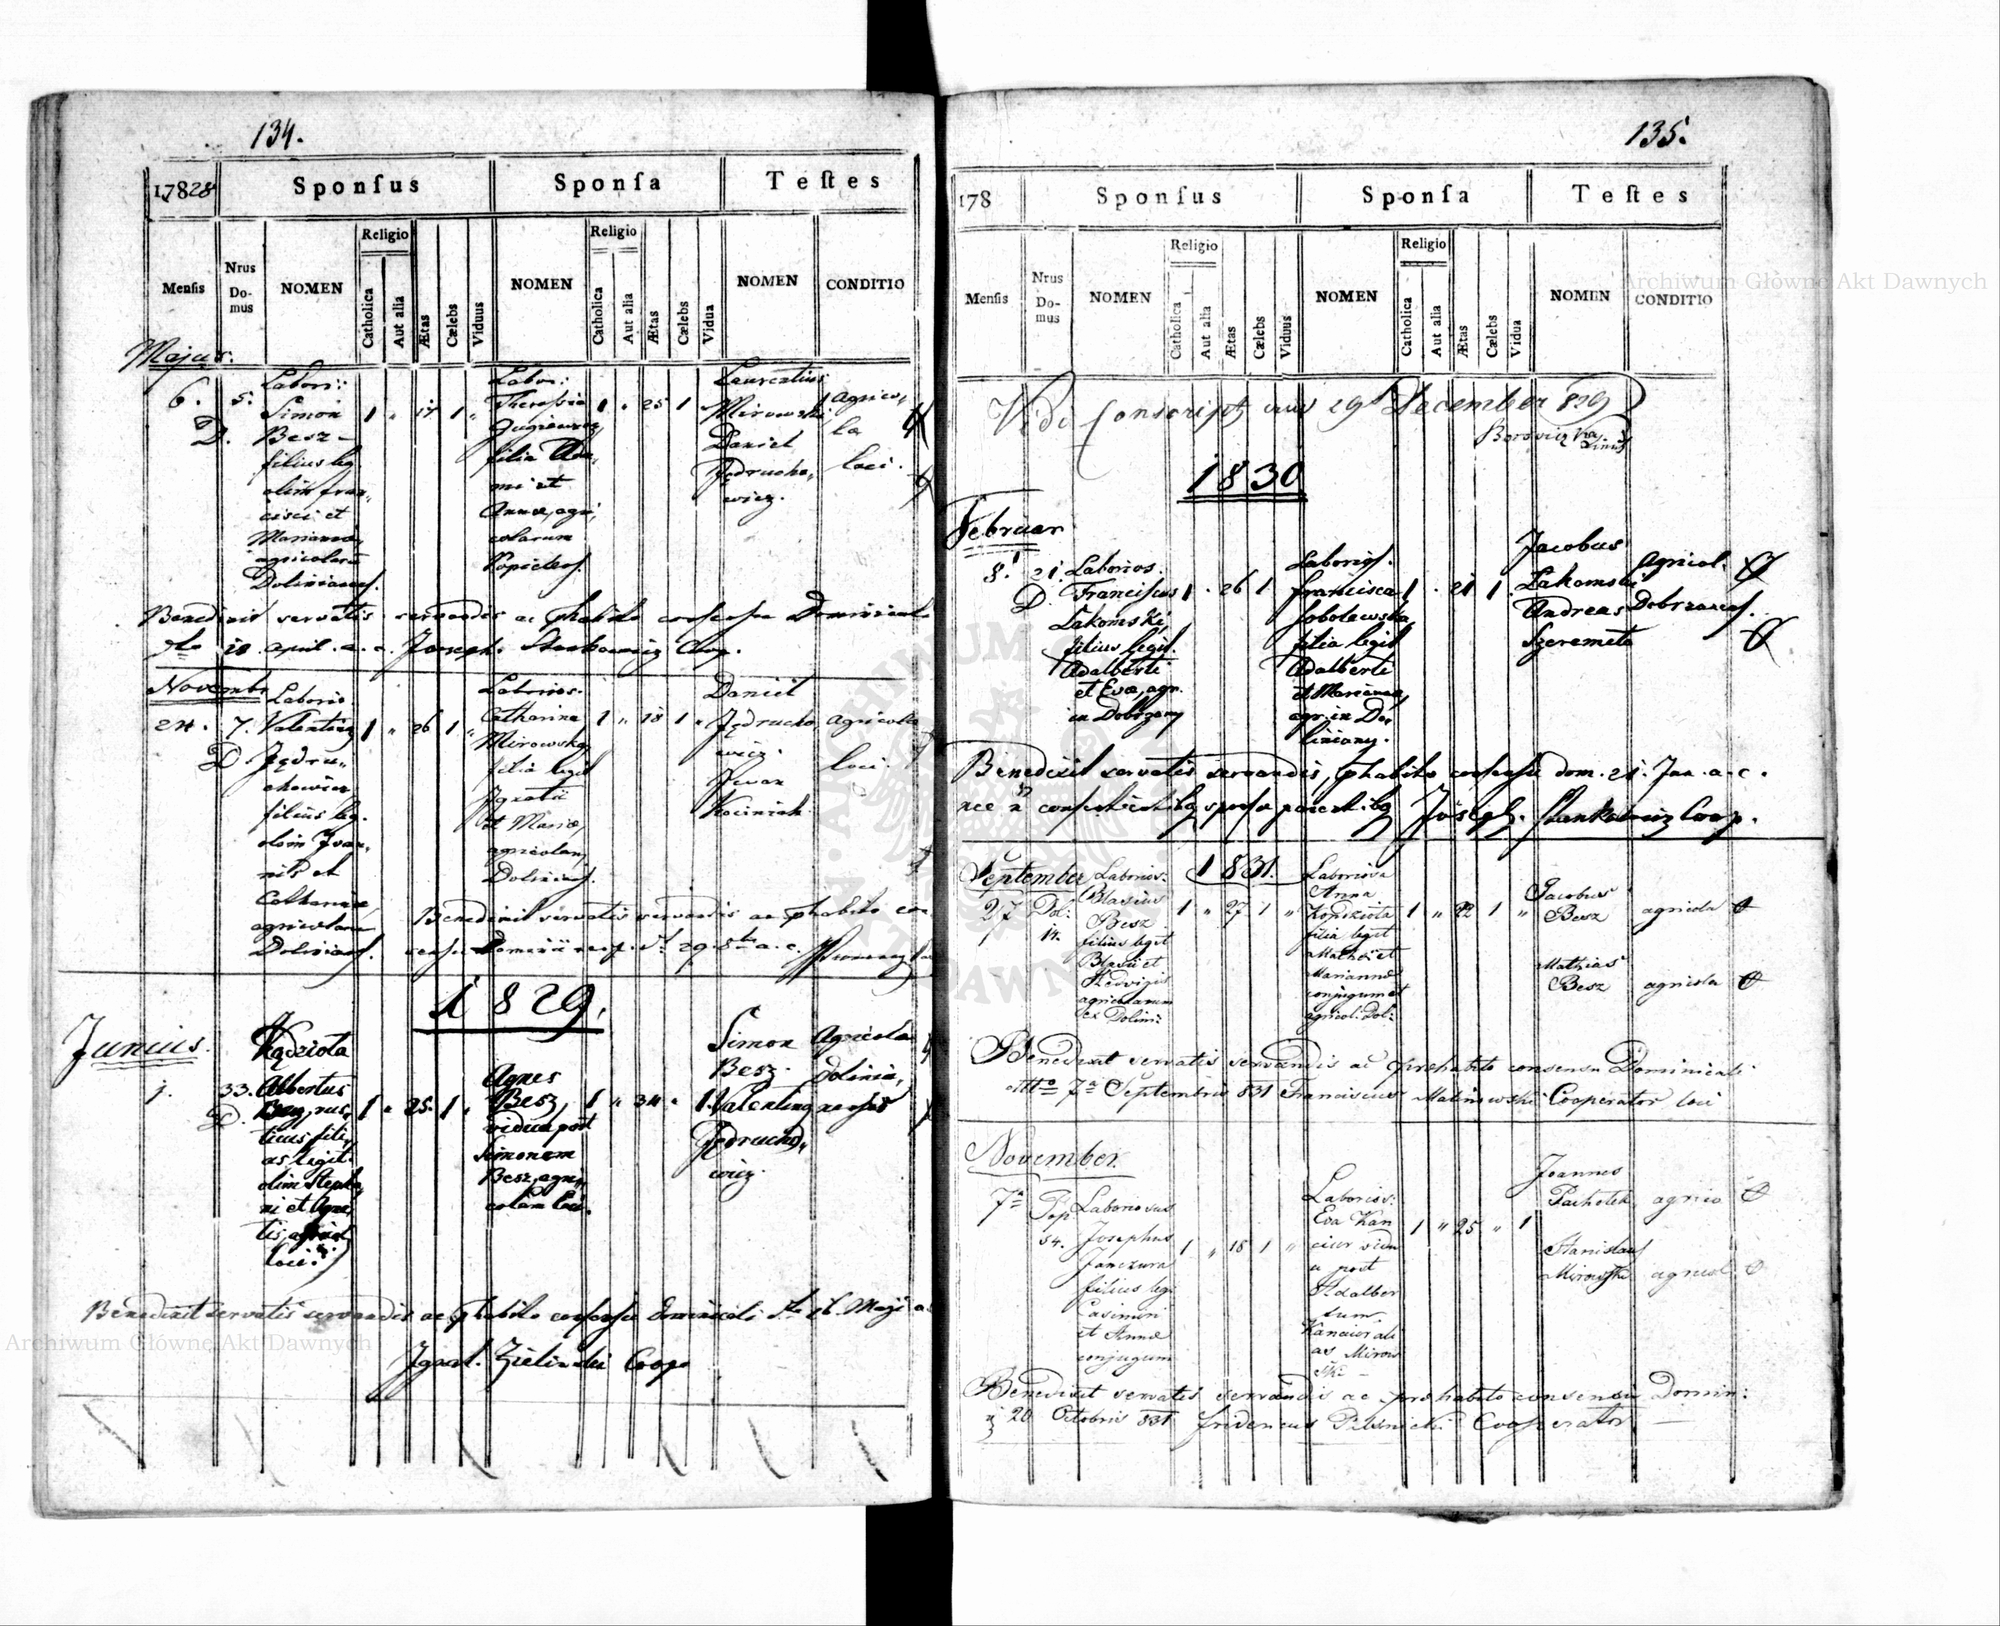 134.
17828 Sponſus Sponſa Teſtes
Menſis Nrus Do-mus NOMEN Religio Catholica Aut alia Ætas Cælebs Viduus NOMEN Religio Catholica Aut alia Ætas Cælebs Vidua NOMEN CONDITIO
Majus.
6. 5. D.
Labori:
Simon 1 " 1 "
Besz
filius leg.
olim Fran,
cisci et
Mariannæ,
agricolarū
Doliniane[n]s.
Labor:
Theressia 1 " 25 1
filia Ada,
mi et
Annæ, agri,
colarum
Laurentius
Mirowski
Daniel
Jędrucho,
wicz.
Agrico,
la
loci.
Benedixit servatis servandis ac phabito consensu Dominicali
dto 18 april. a. c. Joseph. Stankowicz Coop.
Novembr
24. 7. D
Laborio.
Valentinus 1 " 26 1 "
Jędru,
chowicz
filius leg.
olim Ivan,
nis et
Catharinæ,
agricolarum
Dolinians.
Laborios.
Catharina 1 " 18 1 "
Mirowska,
filia legit
Ignatii
et Mariæ,
agricolarum
Dolinians.
Daniel
Jędrucho,
wicz.
Iwan
Kociniak
agricolæ
loci.
Benedixit servatis servandis ac phabito con
sensu Dominii 29. 8bris a. c.
1829.
Junius.
1. 33. D.
Kądziota
Albertus
rus, 1 " 25. 1 "
ticus fili,
us legit.
olim Stepha,
ni et Agne,
tis, agricol
loci.
Agnes
Besz, 1 " 34 " 1.
vidua post
Simonem
Besz, agri,
colam loci.
Simon
Besz.
Valentinus
Jędrucho,
wicz.
Agricolæ
Dolinia,
nenses
Benedixit servatis servandis ac phabito consensu Dominicali dto 16. Maji a.
Ignat. Zieliński Coop
135.
178 Sponſus Sponſa Teſtes
Menſis Nrus Do-mus NOMEN Religio Catholica Aut alia Ætas Cælebs Viduus NOMEN Religio Catholica Aut alia Ætas Cælebs Vidua NOMEN CONDITIO
Vidi Conscript 29 December 829
1830
Februar
8. 21. D
Laborios.
Franciscus 1 . 26 1
Łakomski,
filius legit.
Adalberti
et Evæ, agr.
in Dobrzany
Laborios.
Francisca 1 . 21 1.
Sobolewska,
filia legit
Adalberti
et Mariannæ,
agr. in Do,
liniany.
Jacobus
Łakomski
Andreas
Szeremeta
Agricol.
Dobrzanens.
Benedixit servatis servandis, phabito consensu dom. 21. Jan. a. c.
Joseph. Stankowicz Coop.
1831.
September
27 Dol: 14.
Laborios:
Blasius 1 " 27 1 "
Besz
filius legit
Blasii et
Hedvigis
agricolarum
ex Dolini:
Laboriosa
Anna
Kondziota 1 " 22 1 "
filia legit
Mathei et
Mariannæ
conjugum et
agricol: Dol:
Jacobus
Besz agricola
Mathias
Besz agricola
Benedixit servatis servandis ac præhabito consensu Dominicali
dtto 7a Septembris 831 Franciscus Malinowski Cooperator loci
November
7a Pop 54.
Laboriosus
Josephus
Janczura 1 " 18 1 "
filius legi
Casimiri
et Annæ
conjugum
Laborios:
Eva Kan 1 " 25 " 1
ciur vidu
a post
Adalber
tum
Kanciur ali
as Mirow
ski
Joannes
Pachotek agrico
Stanislaus
Mirowski agricol.
Benedixit servatis servandis ac præhabito consensu Domin:
20 Octobris 831 Fridericus Cooperator
Archiwum Główne Akt Dawnych
Archiwum Główne Akt Dawnych